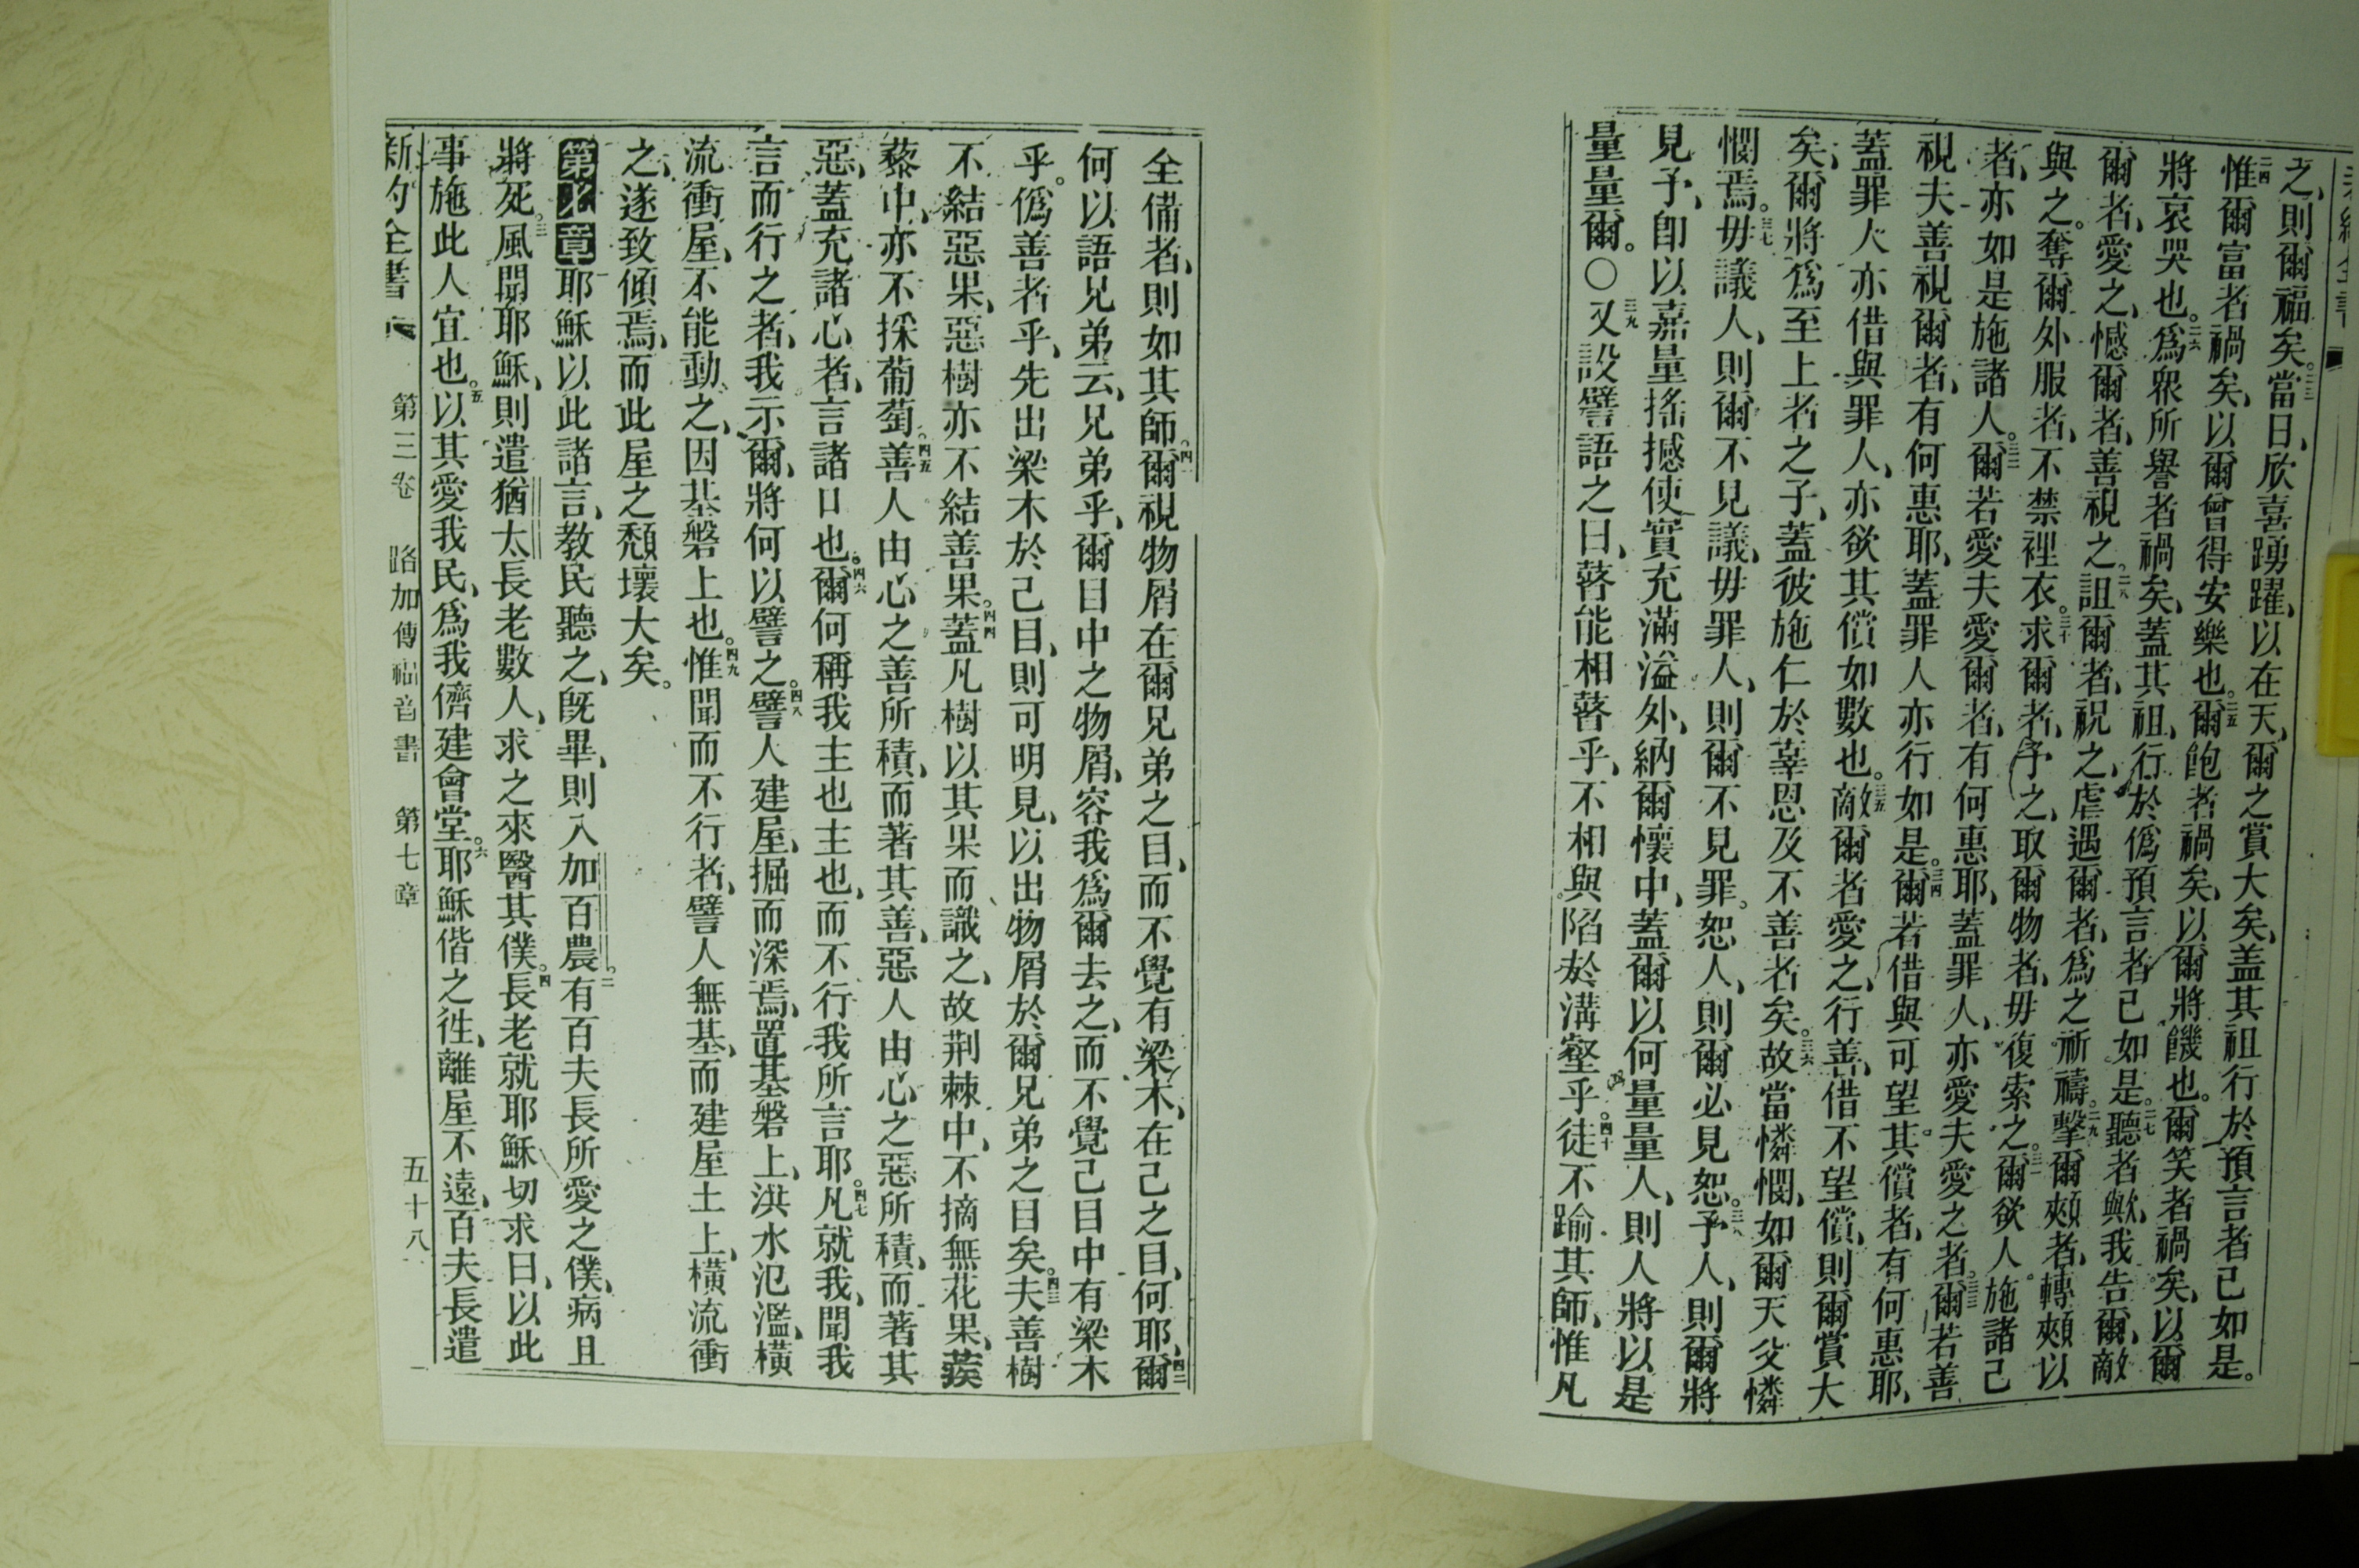 之、則爾福矣。二三當日、欣喜踴躍、以在天、爾之賞大矣、盖其祖行於預言者已如是。
二四惟爾富者禍矣、以爾曾得安樂也。二五爾飽者禍矣、以爾將饑也。爾笑者禍矣、以爾
將哀哭也。二六爲衆所譽者禍矣、蓋其祖、行於僞預言者已如是。二七聽者歟、我告爾、敵
爾者、愛之、憾爾者、善視之。二八詛爾者、祝之、虐遇爾者、爲之祈禱。二九擊爾頰者、轉頰以
與之。奪爾外服者、不禁裡衣。三十求爾者、予之、取爾物者、毋復索之。三一爾欲人施諸己
者、亦如是施諸人。三二爾若愛夫愛爾者、有何惠耶、蓋罪人、亦愛夫愛之者。三三爾若善
視夫善視爾者、有何惠耶、蓋罪人亦行如是。三四爾若借與可望其償者、有何惠耶、
蓋罪人亦借與罪人、亦欲其償如數也。三五敵爾者愛之、行善、借不望償、則爾賞大
矣、爾將爲至上者之子、蓋彼施仁於辜恩及不善者矣。三六故當憐憫、如爾天父憐
憫焉。三七毋議人、則爾不見議、毋罪人、則爾不見罪。恕人、則爾必見恕。三八予人、則爾將
見予、卽以嘉量搖撼使實充滿溢外、納爾懷中、蓋爾以何量量人、則人將以是
量量爾。〇三九又設譬語之曰、瞽能相瞽乎、不相與陷於溝壑乎。四十徒不踰其師、惟凡
全備者、則如其師。四一爾視物屑在爾兄弟之目、而不覺有梁木、在己之目、何耶、四二爾
何以語兄弟云、兄弟乎、爾目中之物屑、容我爲爾去之、而不覺己目中有梁木
乎。僞善者乎、先出梁木於己目、則可明見、以出物屑於爾兄弟之目矣。四三夫善樹
不結惡果、惡樹亦不結善果。四四蓋凡樹以其果而識之、故荆棘中、不摘無花果、蒺
藜中、亦不採葡萄。四五善人由心之善所積、而著其善、惡人由心之惡所積、而著其
惡、蓋充諸心者、言諸口也。四六爾何稱我主也主也、而不行我所言耶。四七凡就我、聞我
言而行之者、我示爾、將何以譬之。四八譬人建屋、掘而深焉、置基磐上、洪水氾濫、橫
流衝屋、不能動之、因基磐上也。四九惟聞而不行者、譬人無基、而建屋土上、橫流衝
之、遂致傾焉、而此屋之頹壞大矣。
第七章耶穌以此諸言、教民聽之、旣畢、則入加百農。二有百夫長所愛之僕、病且
將死。三風聞耶穌、則遣猶太長老數人、求之來醫其僕。四長老就耶穌切求曰、以此
事施此人宜也。五以其愛我民、爲我儕建會堂。六耶穌偕之徃、離屋不遠、百夫長遣
新約全書 第三卷 路加傳福音書 第七章 五十八